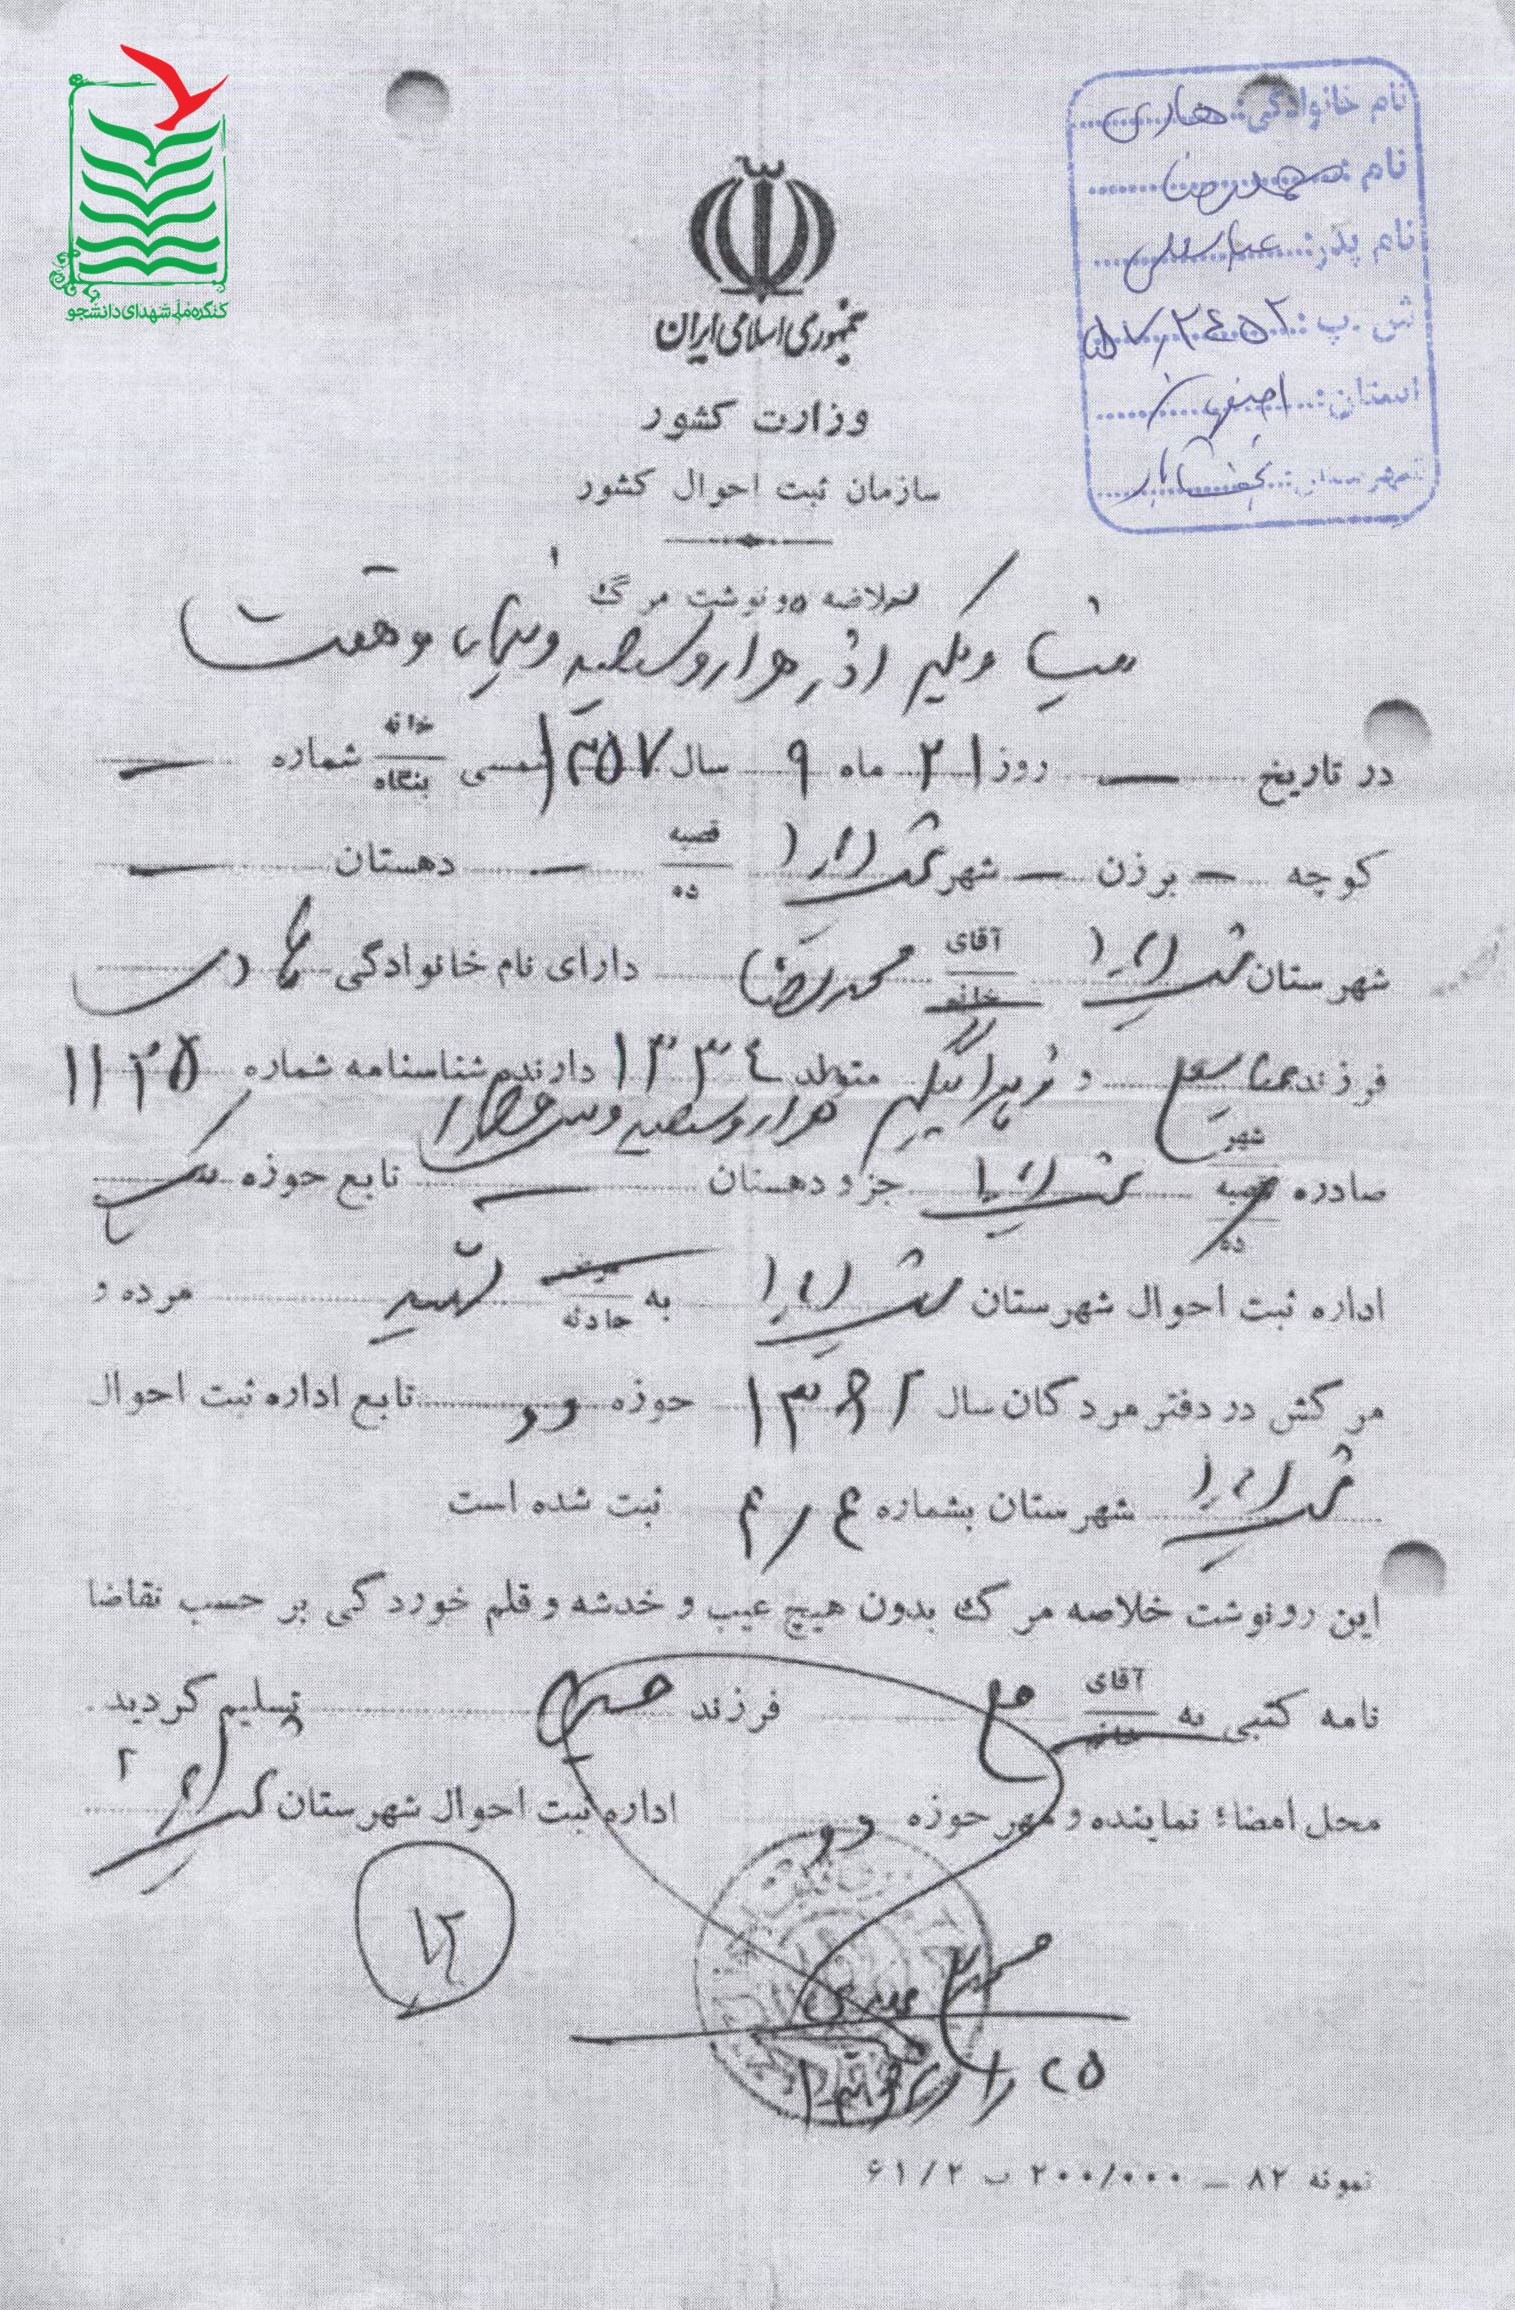 کنگره ملی شهدای دانشجو
نام خانوادگی: هادی
نام: محمدرضا
نام پدر: عباسعلی
ش . پ: ۵۷/۲۴۵۲
استان: اصفهان
شهرستان: نجف آباد
جمهوری اسلامی ایران
وزارت کشور
سازمان ثبت احوال کشور
خلاصه رونوشت مرگ
بیست و یکم آذر هزار و سیصد و پنجاه و هفت
در تاریخ — روز ۲۱ ماه ۹ سال ۱۳۵۷ شمسی خانه بنگاه شماره —
کوچه — برزن — شهر نجف آباد قصبه ده — دهستان —
شهرستان نجف آباد آقای خانم محمدرضا دارای نام خانوادگی هادی
فرزند عباسعلی و متولد ۱۳۳۴ دارنده شناسنامه شماره ۱۱۳۵
هزار و سیصد و سی و چهار
صادره شهر قصبه ده نجف آباد جزو دهستان — تابع حوزه یک
اداره ثبت احوال شهرستان نجف آباد به مرض حادثه شهید مرده و
مرگش در دفتر مردگان سال ۱۳۶۲ حوزه دو تابع اداره ثبت احوال
نجف آباد شهرستان بشماره ۴/۴ ثبت شده است
این رونوشت خلاصه مرگ بدون هیچ عیب و خدشه و قلم خوردگی بر حسب تقاضا
نامه کتبی به آقای خانم فرزند تسلیم گردید .
محل امضاء نماینده و مهر حوزه دو اداره ثبت احوال شهرستان نجف آباد
۱۲
نمونه ۸۲ — ۲۰۰/۰۰۰ ب ۶۱/۲